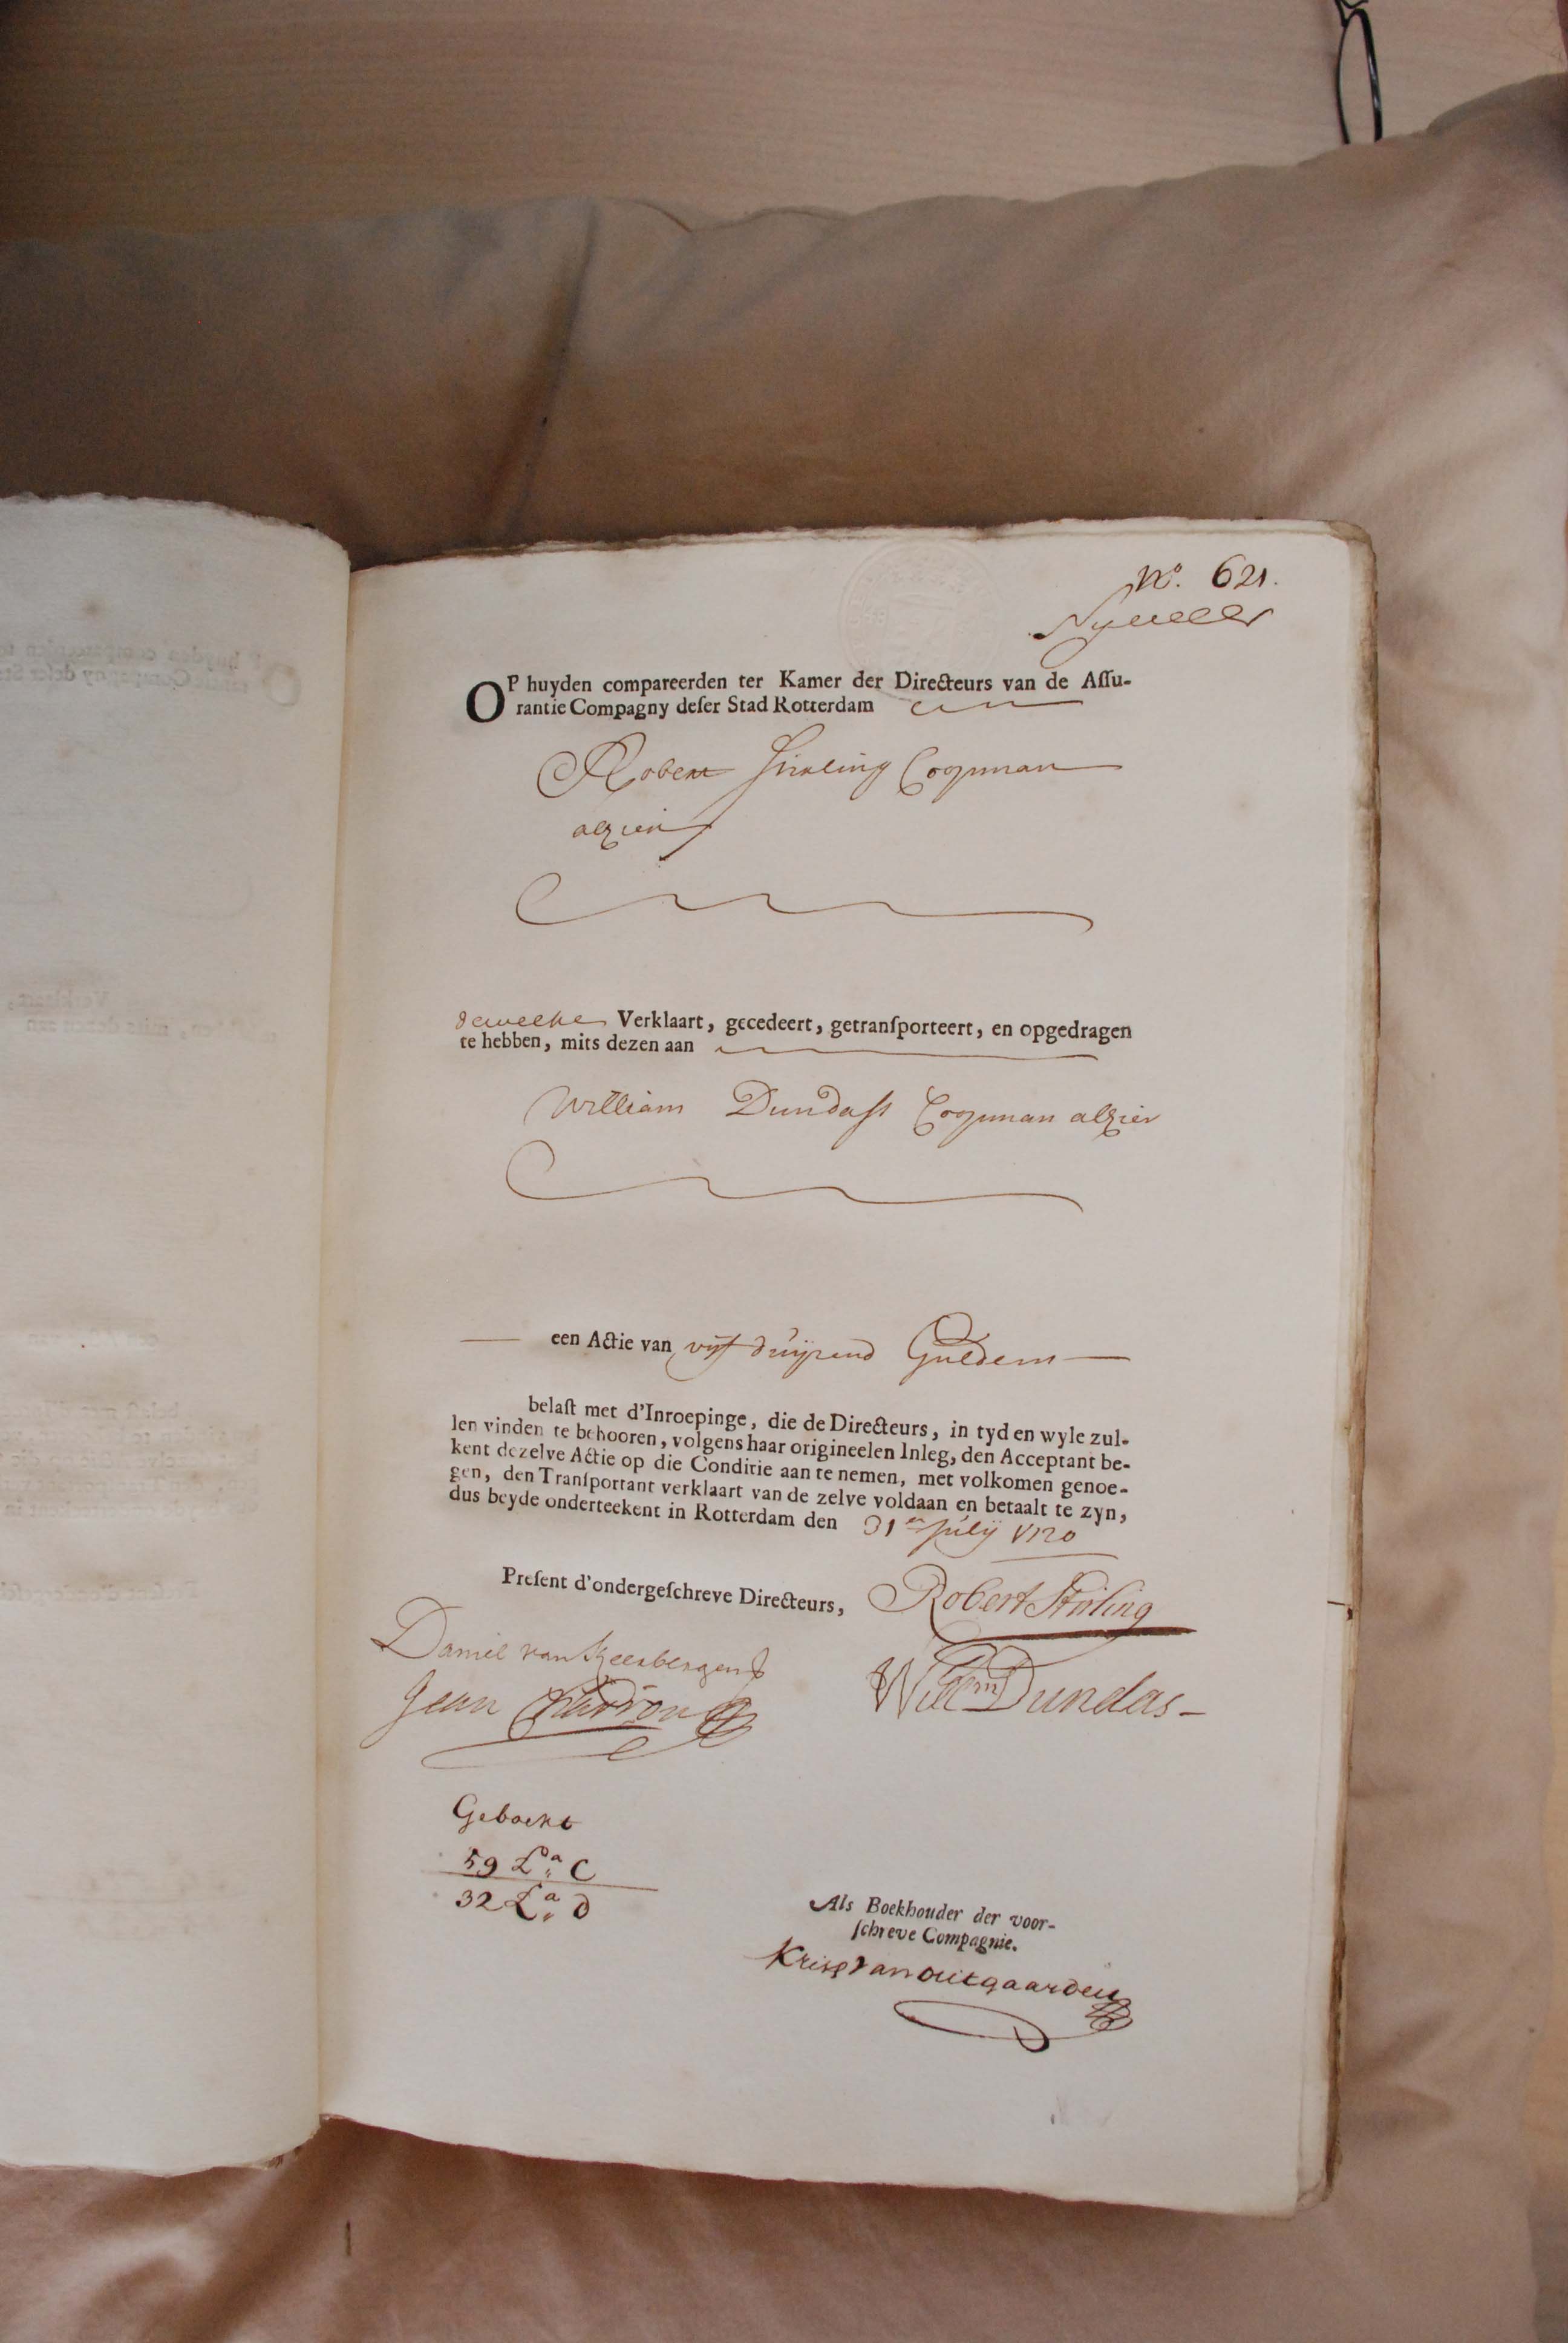 No. 621.
OP huyden compareerden ter Kamer der Directeurs van de Aſſu-
rantie Compagny deſer Stad Rotterdam
Robert Stirling Coopman
alhier
dewelke Verklaart, gecedeert, getranſporteert, en opgedragen
te hebben, mits dezen aan
William Dundaſs Coopman alhier
een Actie van vijf duijsend Guldens
belaſt met d'Inroepinge, die de Directeurs, in tyd en wyle zul-
len vinden te behooren, volgens haar origineelen Inleg, den Acceptant be-
kent dezelve Actie op die Conditie aan te nemen, met volkomen genoe-
gen, den Tranſportant verklaart van de zelve voldaan en betaalt te zyn,
dus beyde onderteekent in Rotterdam den 31en Julij 1720
Preſent d'ondergeſchreve Directeurs,
Robert Stirling
Daniel van
Jean
Willm Dundas
Geboekt
59 La. C
32 La. D
Als Boekhouder der voor-
ſchreve Compagnie.
Krisp van outgaarden